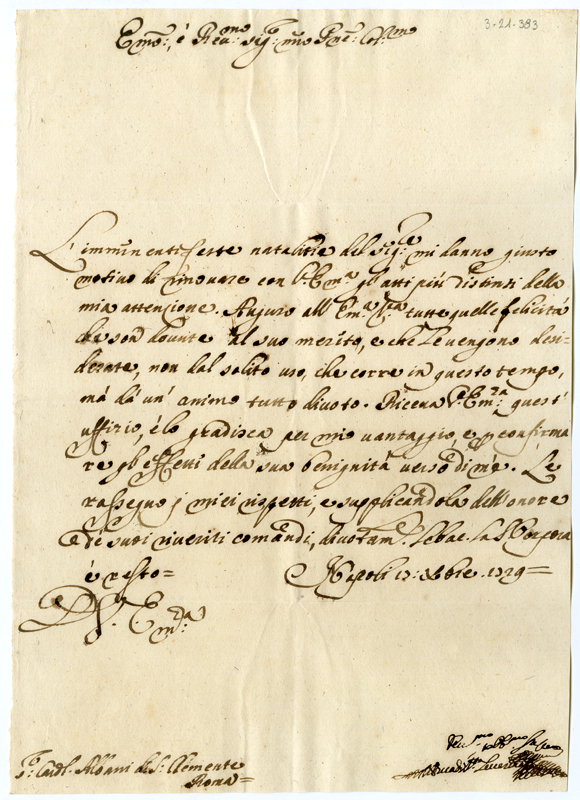 3-21-393
Emo:, è Reu:mo sig:r mio Pne: Col:mo
L'imminenti feste natalitie del Sig:re mi danno giusto
motiuo di rinouare con V: Em:a gl'atti più distinti della
mia attenzione. Auguro all'Em:a V:ra tutte quelle felicità
che son douute al suo merito, e che le uengono desi-
derate, non dal solito uso, che corre in questo tempo,
mà dà un' animo tutto diuoto. Riceua V: Em:za quest'
uffizio, è lo gradisca per mio uantaggio, e p confirma
re gl'effetti della sua benignità uerso di mè. Le
rassegno i miei rispetti, e supplicandola dell'onore
de suoi riueriti comandi, diuotam:e le bac. la S Porpora
è resto=
Napoli 13: Xbre. 1729=
D V: Em:za
S:r Cardl. Albani di S: Clemente
Roma=